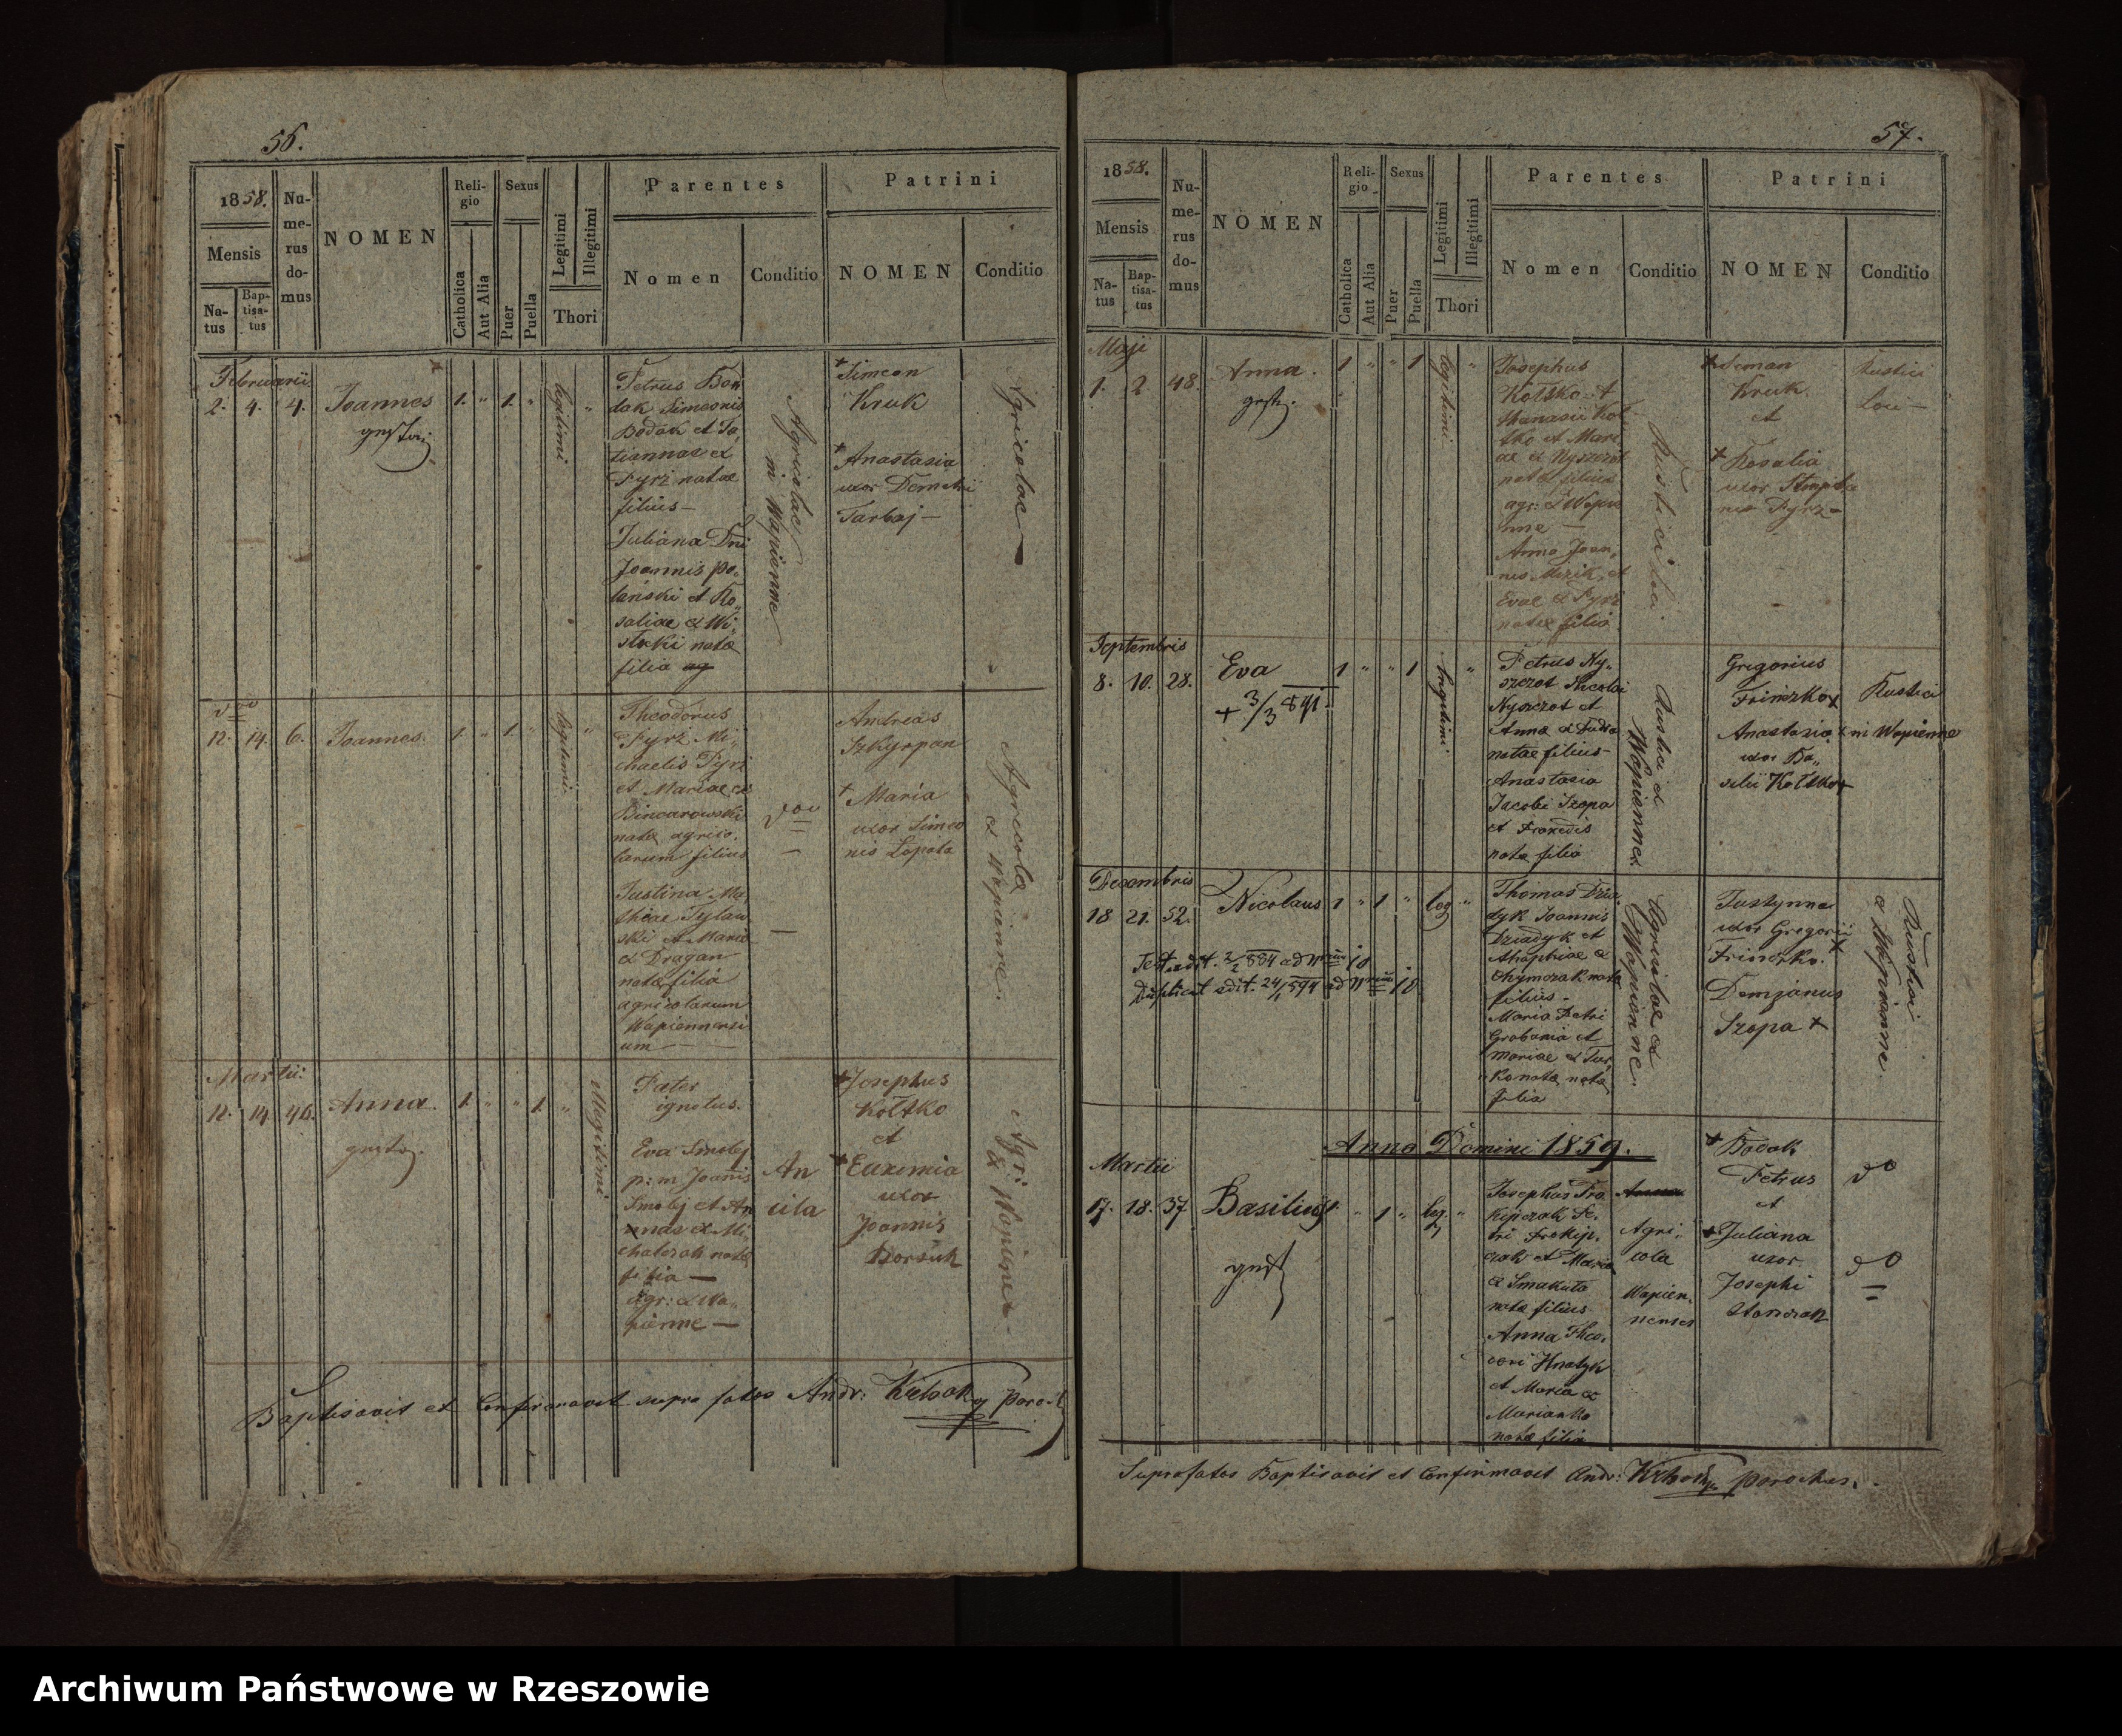 56.
1858.
Mensis
Na-
tus
Bap-
tisa-
tus
Nu-
me-
rus
do-
mus
NOMEN
Reli-
gio
Catholica
Aut Alia
Sexus
Puer
Puella
Legitimi
Illegitimi
Thori
Parentes
Nomen
Conditio
Patrini
NOMEN
Conditio
Februarii
2. 4. 4. Joannes 1. " 1. "
legitimi
"
Petrus Bo
dak Simeonis
Bodak et Ta
tiannae ex
Pyrz natae
filius —
Juliana Dni
Joannis Po-
lański et Ro-
saliae ex Wi-
słocki nata
filia
Agricolae
in Wapienne
+ Simeon
Kruk
+ Anastasia
uxor Demetrii
Tarbaj —
Agricolae —
12. 14. 6. Joannes. 1. " 1. "
legitimi
"
Theodorus
Pyrz Mi-
chaelis Pyrz
et Mariae ex
Bincarowski
nata agrico-
larum filius
Justina Ma-
thiae Tylaw
ski et Maria
ex Dragan
nata filia
agricolarum
Wapiennensi
um —
Andreas
Szkyrpan
+ Maria
uxor Simeo
nis Łopata
Agricola
ex Wapienne.
Martii
12. 14. 46. Anna. 1. " " 1. "
Illegitimi
Pater
ignotus.
Eva Smolej
p: m Joannis
Smolej et An
nnae ex Mi-
chalczak nata
filia —
agr: ex Wa-
pienne —
An
cila
+ Josephus
Kotsko
et
+ Euxemia
uxor
Joannis
Dorsuk
Agri
ex Wapienne.
Baptisavit et Confirmavit supra fatos Andr: Paroch
57.
1858.
Mensis
Na-
tus
Bap-
tisa-
tus
Nu-
me-
rus
do-
mus
NOMEN
Reli-
gio
Catholica
Aut Alia
Sexus
Puer
Puella
Legitimi
Illegitimi
Thori
Parentes
Nomen
Conditio
Patrini
NOMEN
Conditio
Maji
1. 2. 48. Anna. 1 " " 1
legitimi
"
Josephus
Kotsko A
thanasii Kot
sko et Mari
ae ex Hyszczot
nata filius
agr: ex Wapie
nne —
Anna Joan-
nis Mizik, et
Evae ex Pyrz
nata filia
Rustici loci.
+ Seman
Kruk
et
+ Rosalia
uxor Stepha
nis Pyrz —
Rustici
Loci —
Septembris
8. 10. 28. Eva 1 " " 1
legitimi
"
+ 3/3 891.
Petrus Hy-
szczot Nicolai
Hyszczot et
Anna ex Dudra
natae filius —
Anastasia
Jacobi Szopa
et Praxedis
nata filia
Rustici ex
Wapienne.
Gregorius
Friniczko +
Anastasia
uxor Ba-
silii Kotsko +
Rustici
in Wapienne
Decembris
18 21. 52. Nicolaus 1 " 1 " leg "
Thomas Dzia-
dyk Joannis
Dziadyk et
Ahaphiae ex
Chymczak nata
filius —
Maria Petri
Grabania et
Mariae ex Tur
ko nata nata
filia
Agricolae ex
Wapienne.
Justynna
uxor Gregorii
Friniczko. +
Demjanus
Szopa +
Rustici
ex Wapienne.
Anno Domini 1859.
Martii
17. 18. 37 Basilius 1. " 1 " leg. "
Josephus Pro
kipczak Pe-
tri Prokip-
czak et Maria
ex Smakuta
nata filius
Anna Theo-
dori Hnatyk
et Maria ex
Marianko
nata filia
Agri-
cola
Wapien-
nensis
+ Bodak
Petrus
et
+ Juliana
uxor
Josephi
do
do
Suprafatos Baptisavit et Confirmavit Andr: parochus.
Archiwum Państwowe w Rzeszowie